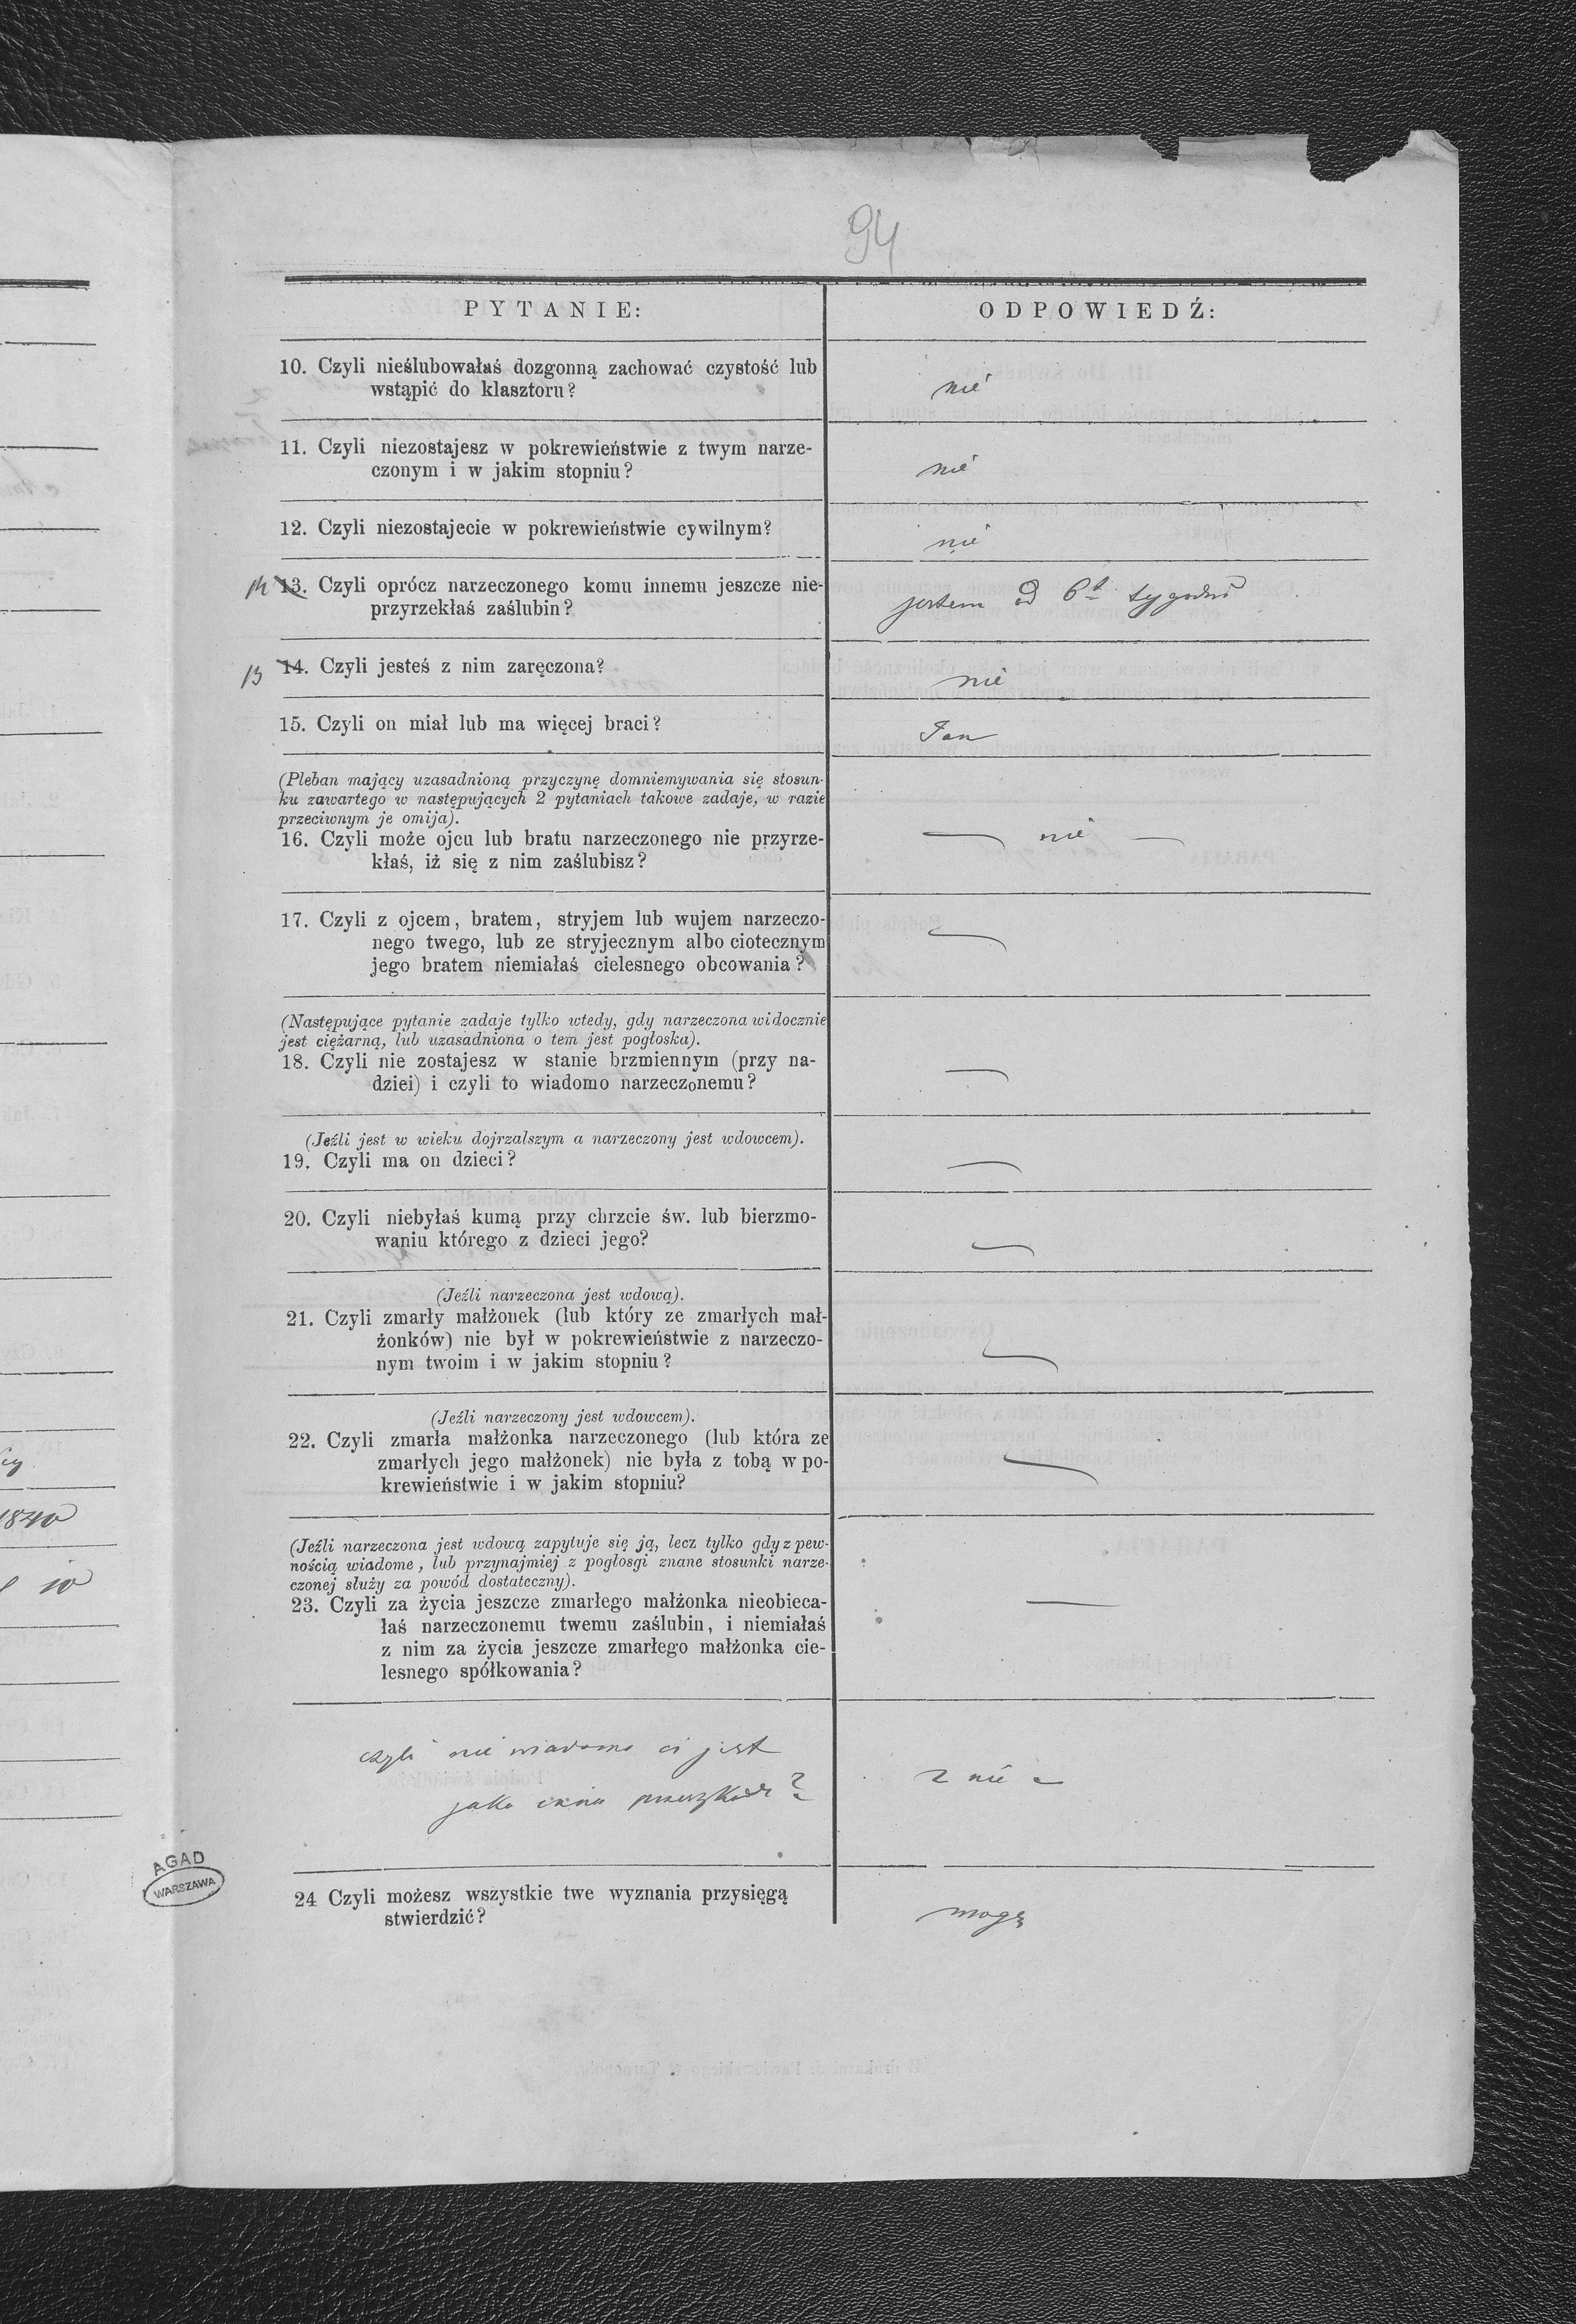 94
PYTANIE:
ODPOWIEDŹ:
10. Czyli nieślubowałaś dozgonną zachować czystość lub
wstąpić do klasztoru?
nie
11. Czyli niezostajesz w pokrewieństwie z twym narze-
czonym i w jakim stopniu?
nie
12. Czyli niezostajecie w pokrewieństwie cywilnym?
nie
14 13. Czyli oprócz narzeczonego komu innemu jeszcze nie-
przyrzekłaś zaślubin?
jestem od 6t tygodni
13 14. Czyli jesteś z nim zaręczona?
nie
15. Czyli on miał lub ma więcej braci?
Jan
(Pleban mający uzasadnioną przyczynę domniemywania się stosun-
ku zawartego w następujących 2 pytaniach takowe zadaje, w razie
przeciwnym je omija).
16. Czyli może ojcu lub bratu narzeczonego nie przyrze-
kłaś, iż się z nim zaślubisz?
— nie —
17. Czyli z ojcem, bratem, stryjem lub wujem narzeczo-
nego twego, lub ze stryjecznym albo ciotecznym
jego bratem niemiałaś cielesnego obcowania?
—
(Następujące pytanie zadaje tylko wtedy, gdy narzeczona widocznie
jest ciężarną, lub uzasadniona o tem jest pogłoska).
18. Czyli nie zostajesz w stanie brzmiennym (przy na-
dziei) i czyli to wiadomo narzeczonemu?
—
(Jeźli jest w wieku dojrzalszym a narzeczony jest wdowcem).
19. Czyli ma on dzieci?
—
20. Czyli niebyłaś kumą przy chrzcie św. lub bierzmo-
waniu którego z dzieci jego?
—
(Jeźli narzeczona jest wdową).
21. Czyli zmarły małżonek (lub który ze zmarłych mał-
żonków) nie był w pokrewieństwie z narzeczo-
nym twoim i w jakim stopniu?
—
(Jeźli narzeczony jest wdowcem).
22. Czyli zmarła małżonka narzeczonego (lub która ze
zmarłych jego małżonek) nie była z tobą w po-
krewieństwie i w jakim stopniu?
—
(Jeźli narzeczona jest wdową zapytuje się ją, lecz tylko gdy z pew-
nością wiadome, lub przynajmiej z pogłosgi znane stosunki narze-
czonej służy za powód dostateczny).
23. Czyli za życia jeszcze zmarłego małżonka nieobieca-
łaś narzeczonemu twemu zaślubin, i niemiałaś
z nim za życia jeszcze zmarłego małżonka cie-
lesnego spółkowania?
—
czyli nie wiadomo ci jest
jaka inna przeszkoda?
nie
24 Czyli możesz wszystkie twe wyznania przysięgą
stwierdzić?
mogę
AGAD
WARSZAWA
1840